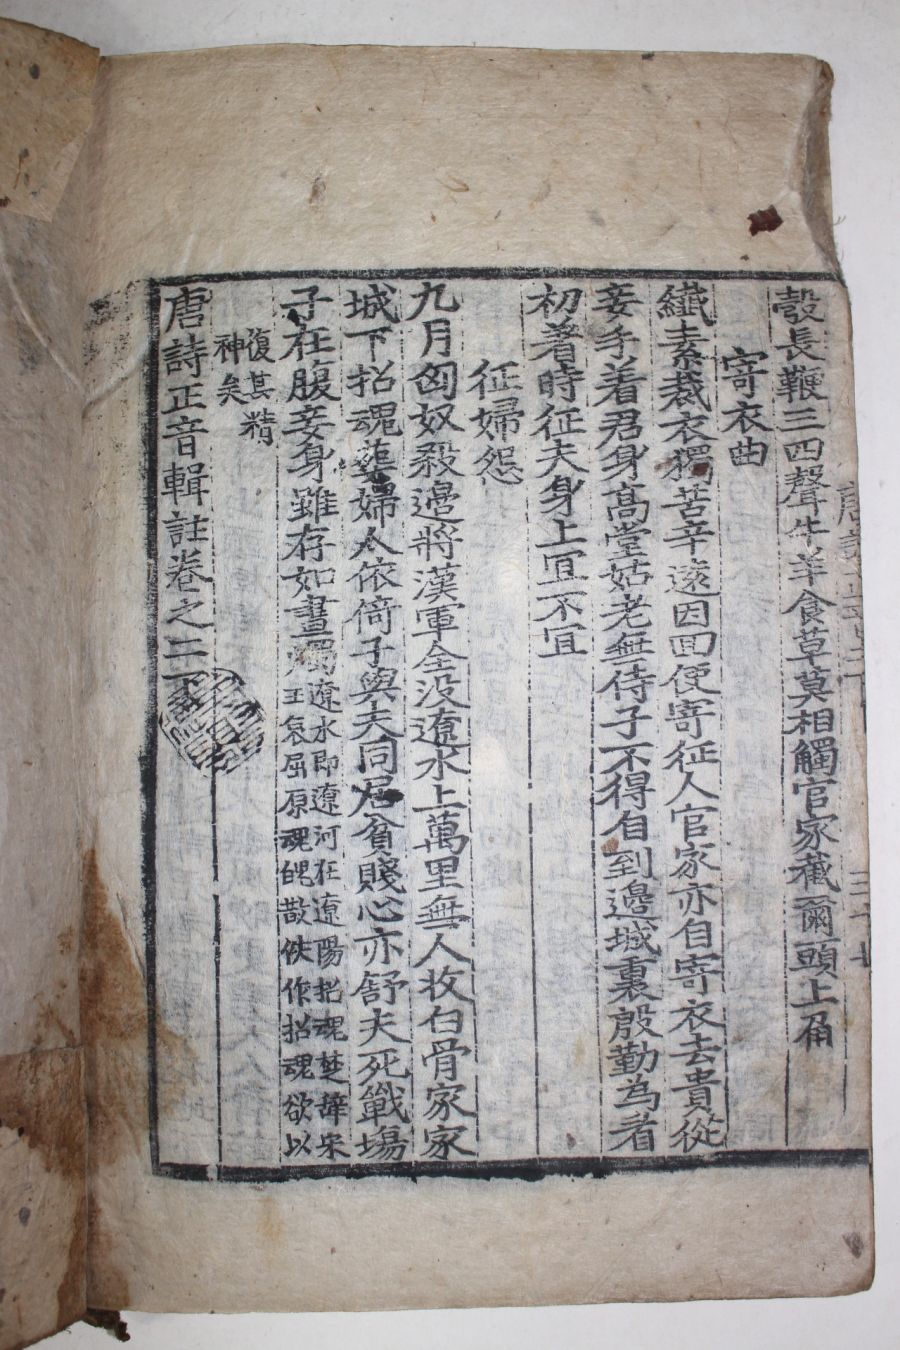 彀長鞭三四聲牛羊食草莫相觸官家截爾頭上角
寄衣曲
纖素裁衣獨苦辛遠因回使寄征人官家亦自寄衣去貴從
妾手着君身高堂姑老無侍子不得自到邊城裏殷勤為看
初著時征夫身上宜不宜
征婦怨
九月匈奴殺邊將漢軍全沒遼水上萬里無人收白骨家家
城下招魂葬婦人依倚子與夫同居貧賤心亦舒夫死戰場
子在腹妾身雖存如晝燭
遼水即遼河在遼陽招魂楚辞宋
玉哀屈原魂魄散佚作招魂欲以
復其精
神矣
唐詩正音輯註卷之二下